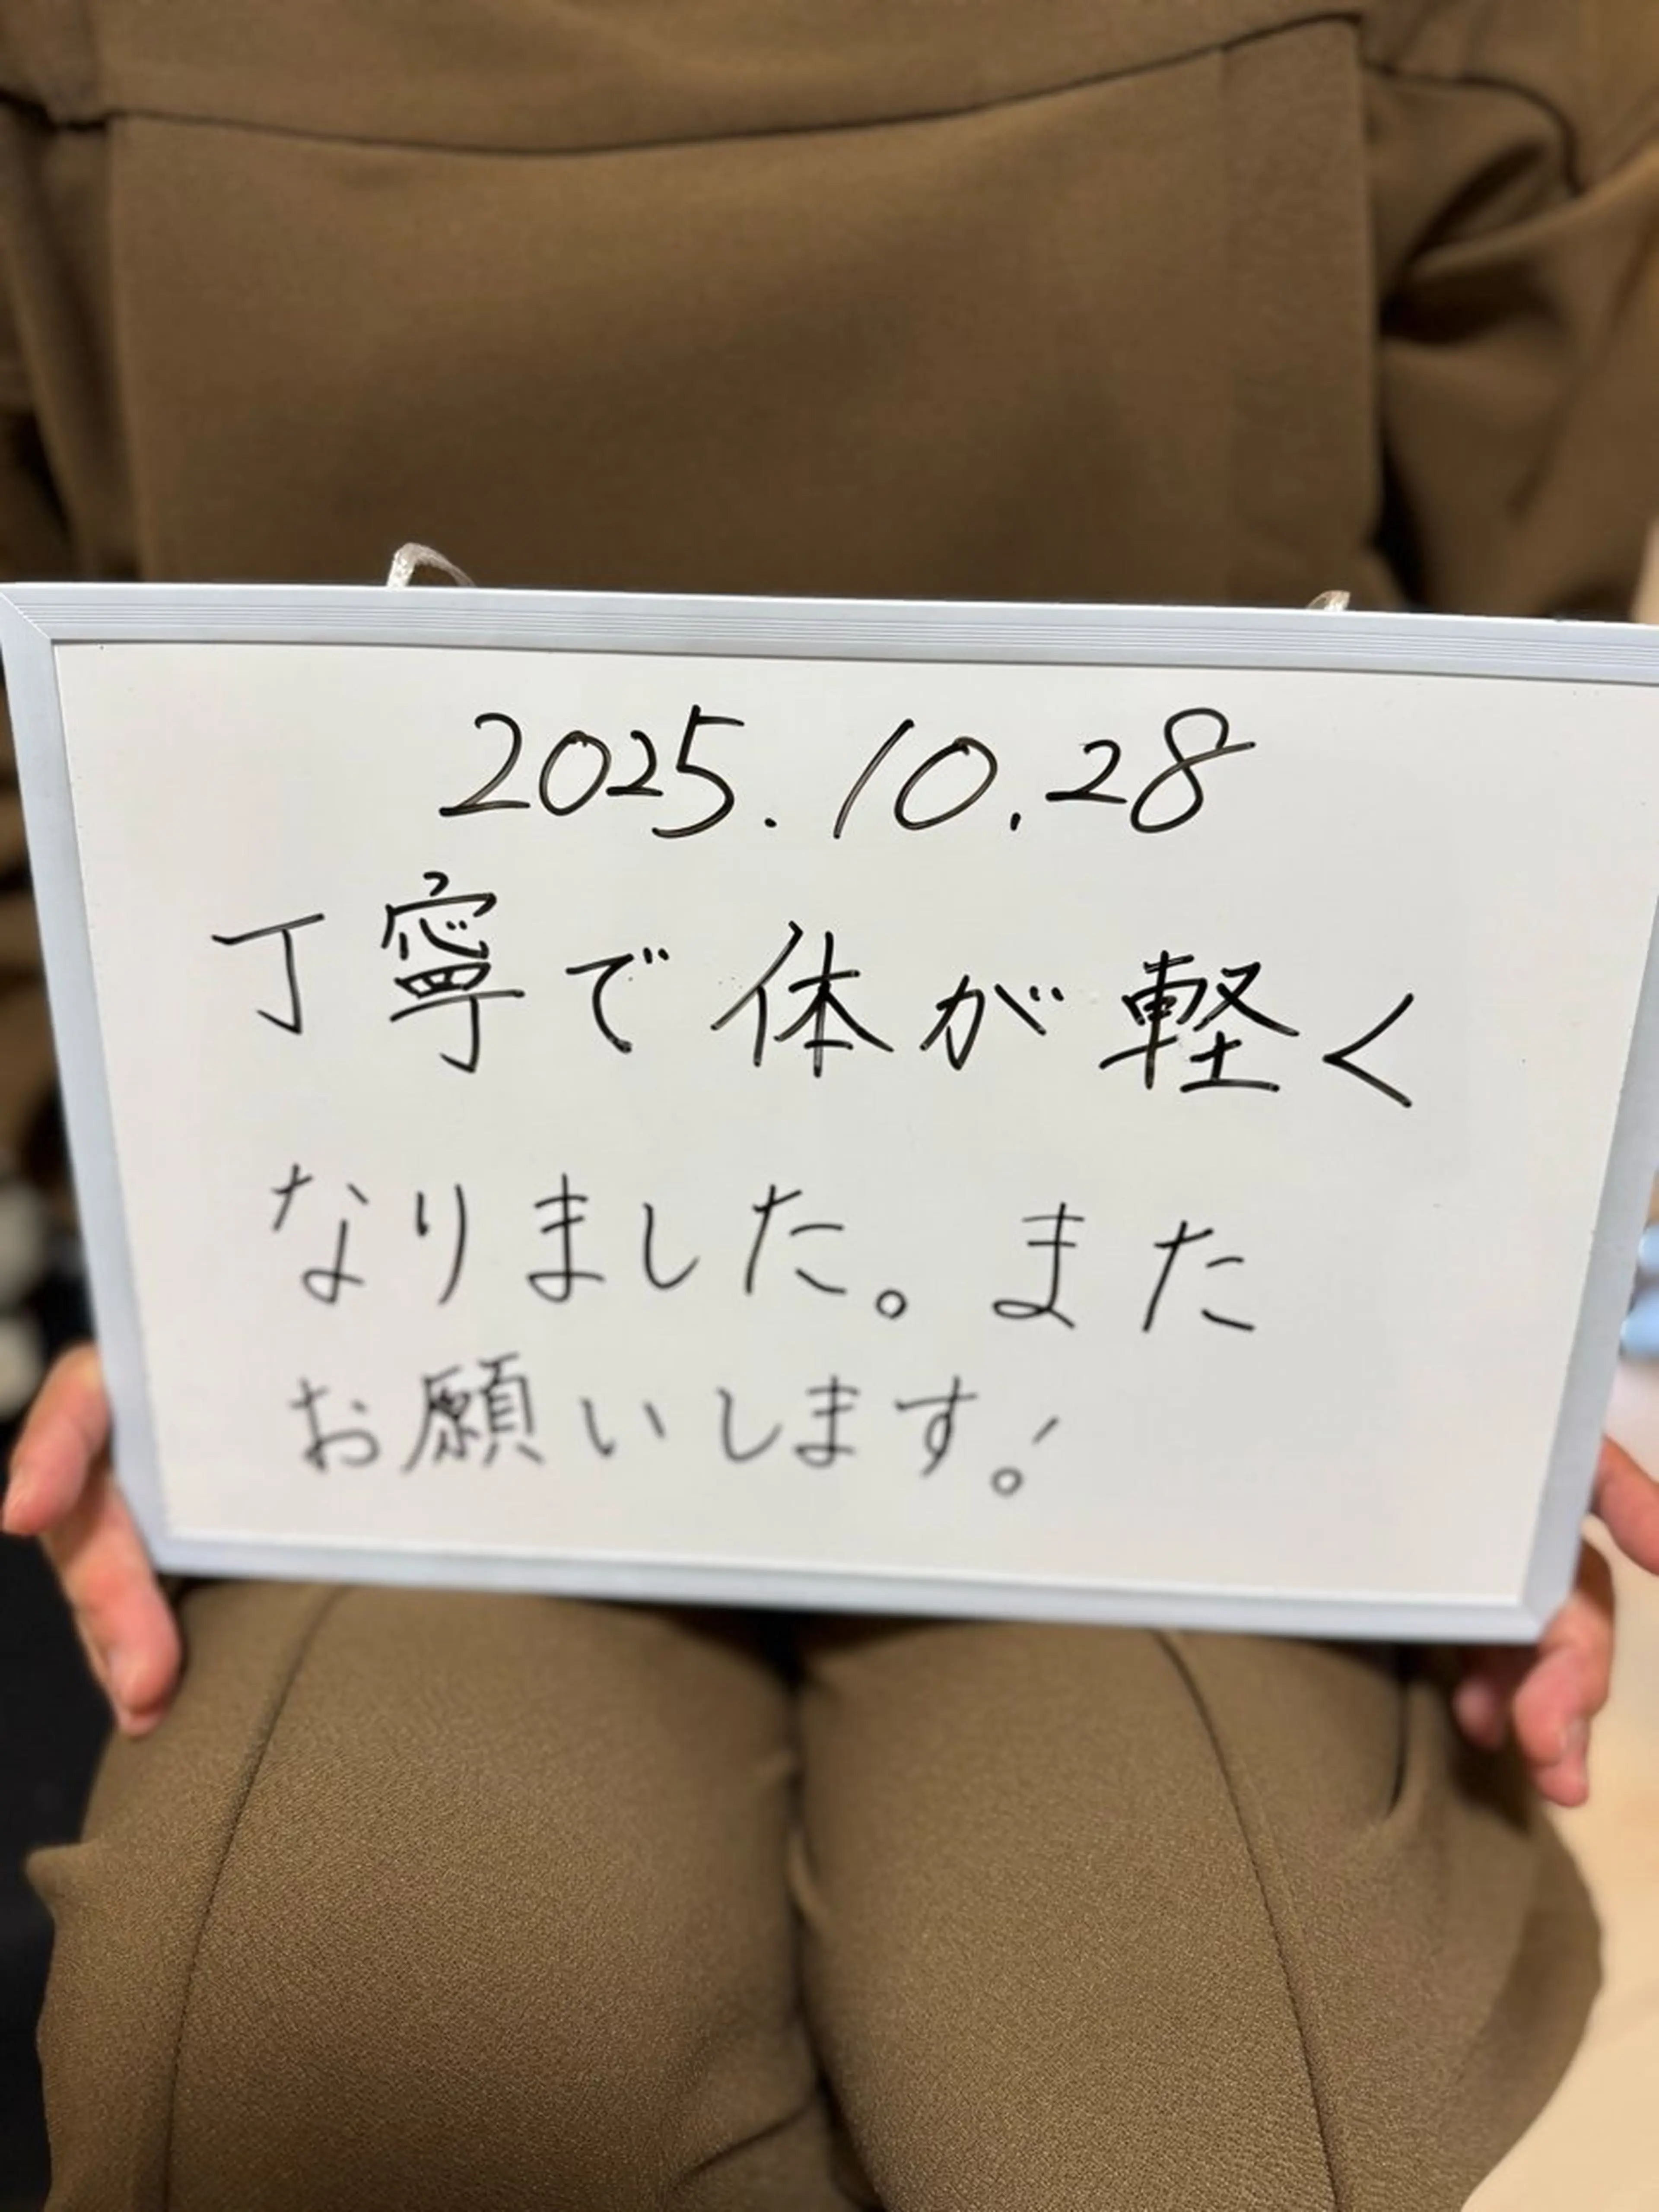 2025.10.28
丁寧で体が軽く
なりました。また
お願いします!